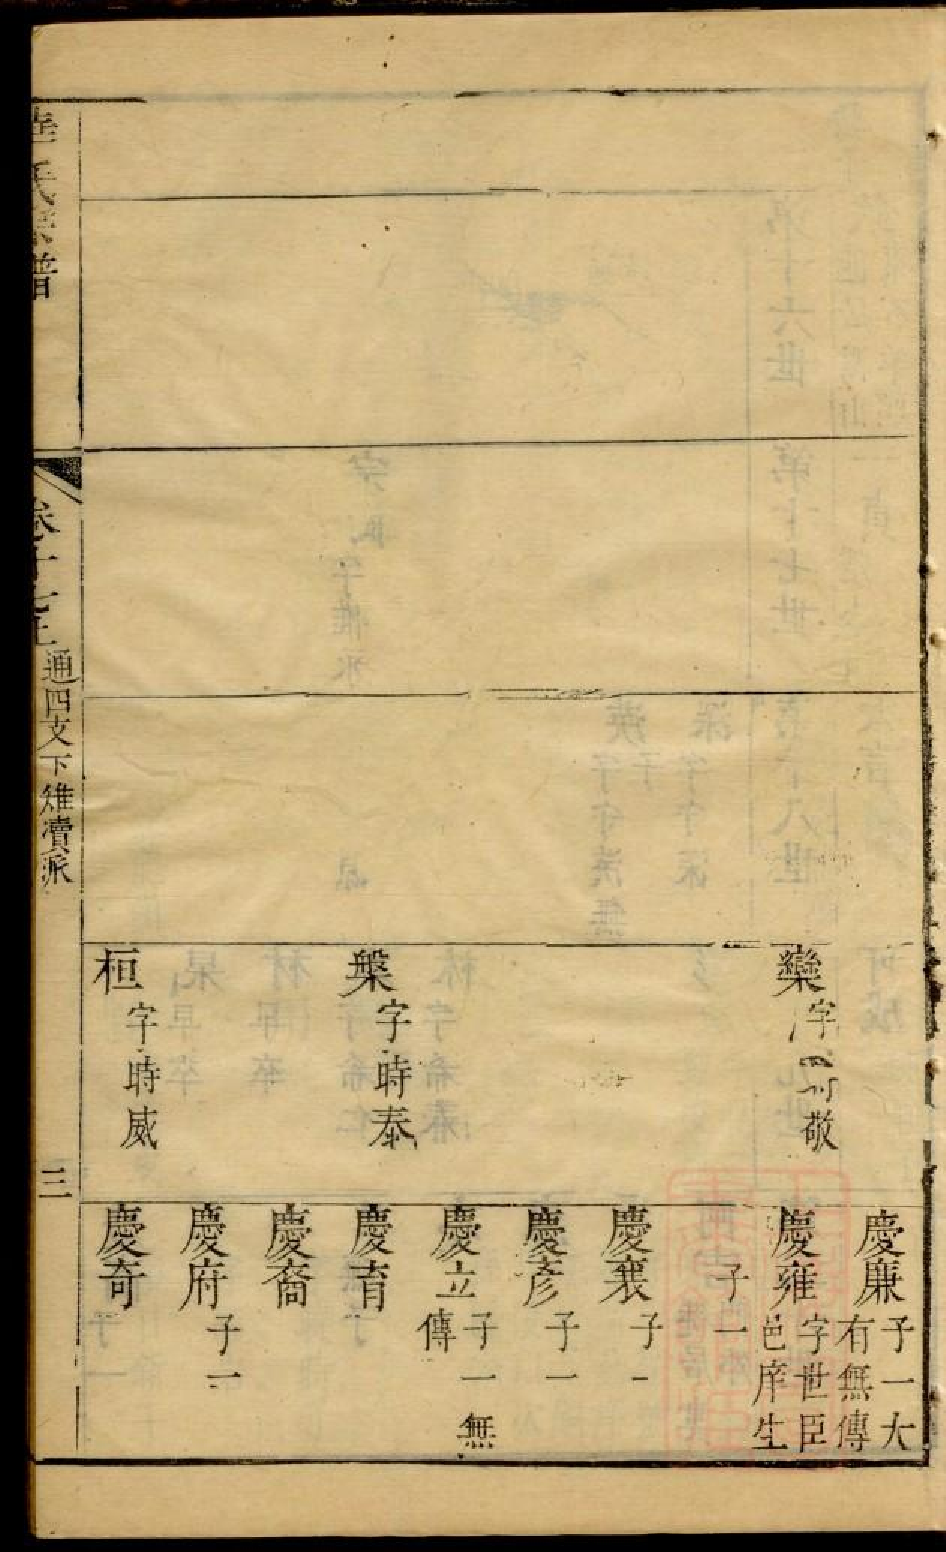 欒 字時敬
槃 字時泰
桓 字時威
慶廉 子一大
有無傳
慶雍 字世臣
邑庠生
子一
慶裴 子一
慶彥 子一
慶立 子一無
傳
慶育
慶裔
慶府 子一
慶奇
氏宗譜
卷十七上
通四支下雉瀆派
三